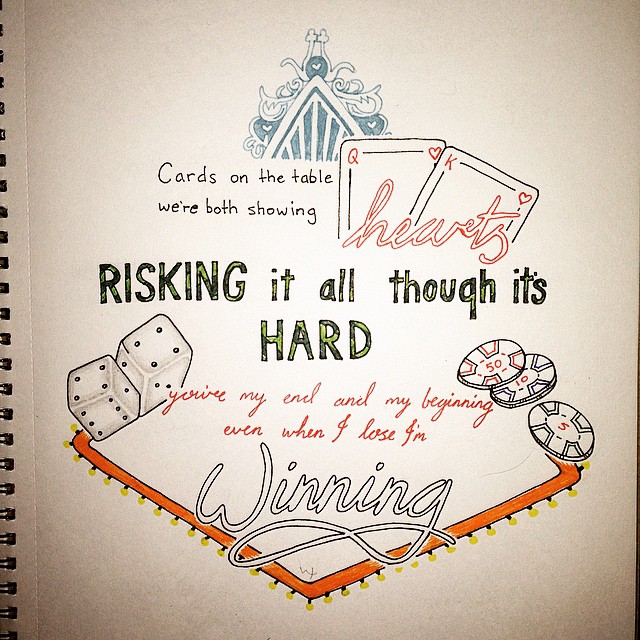 Q K
Cards on the table
we're both showing
hearts
RISKING it all though it's
HARD
50
10
5
you're my end and my beginning
even when I lose I'm
Winning